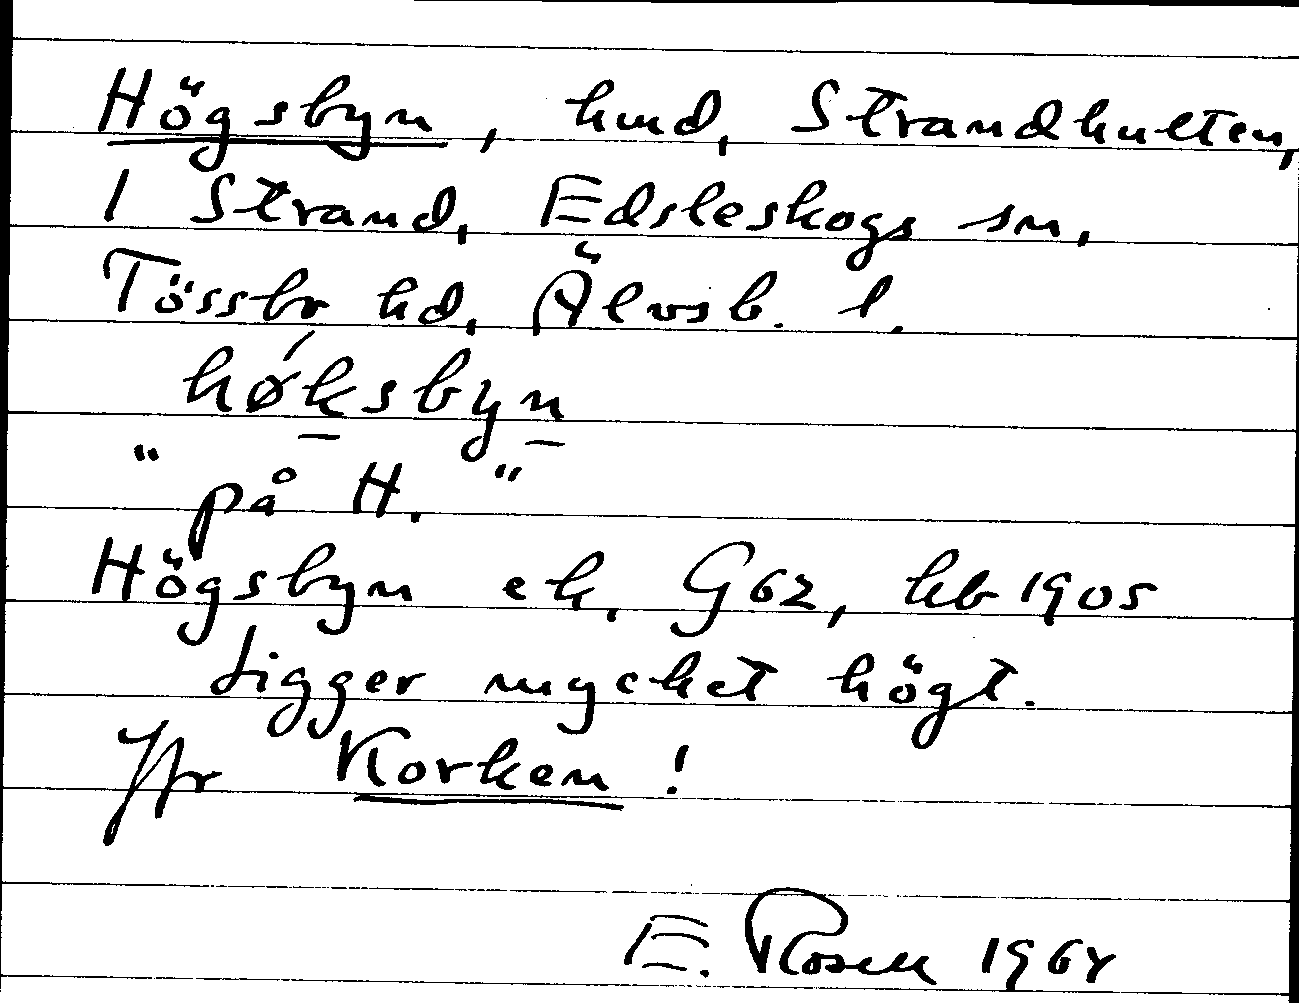 Högsbyn, hmd, Strandhulten,
1 Strand, Edsleskogs sn,
Tössbo hd, Älvsb. l.
høksbyn
"på H."
Högsbyn ek. G62, hb 1905
Ligger mycket högt.
Jfr Korken!
E. Rosell 1964